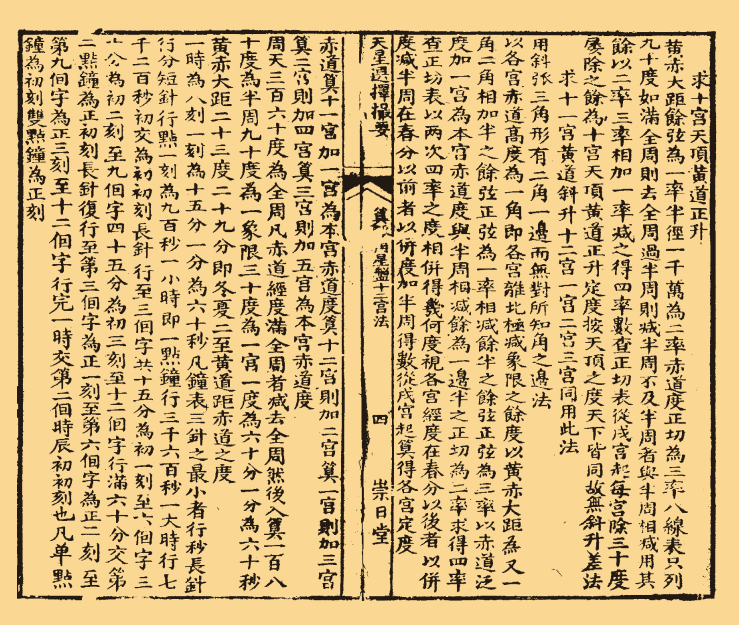 求十宮天頂黃道正升
黃赤大距餘弦為一率半徑一千萬為二率赤道度正切為三率八線表只列
九十度如滿全周則去全周過半周則減半周不及半周者與半周相減用其
餘以二率三率相加一率減之得四率數查正切表從戌宮起每宮除三十度
屡除之餘為十宮天頂黃道正升定度按天頂之度天下皆同故無斜升差法
求十一宮黃道斜升十二宮一宮二宮三宮同用此法
用斜張三角形有二角一邊而無對所知角之邊法
以各宮赤道高度為一角即各宮離北極減象限之餘度以黃赤大距為又一
角二角相加半之餘弦正弦為一率相減餘半之餘弦正弦為三率以赤道泛
度加一宮為本宮赤道度與半周相減餘為一邊半之正切為二率求得四率
查正切表以兩次四率之度相併得幾何度視各宮經度在春分以後者以併
度減半周在春分以前者以併度加半周得數從戌宮起算得各宮定度
天星選擇撮要
算
用星盤十二宮法
四
崇日堂
赤道算十一宮加一宮為本宮赤道度算十二宮則加二宮算一宮則加三宮
算二宮則加四宮算三宮則加五宮為本宮赤道度
周天三百六十度為全周凡赤道經度滿全周者減去全周然後入算一百八
十度為半周九十度為一象限三十度為一宮一度為六十分一分為六十秒
黃赤大距二十三度二十九分即冬夏二至黃道距赤道之度
一時為八刻一刻為十五分一分為六十秒凡鐘表三針之最小者行秒長針
行分短針行點一刻為九百秒一小時即一點鐘行三千六百秒一大時行七
千二百秒初交為初初刻長針行至三個字共十五分為初一刻至六個字三
十分為初二刻至九個字四十五分為初三刻至十二個字行滿六十分交第
二點鐘為正初刻長針復行至第三個字為正一刻至第六個字為正二刻至
第九個字為正三刻至十二個字行完一時交第二個時辰初初刻也凡单點
鐘為初刻雙點鐘為正刻